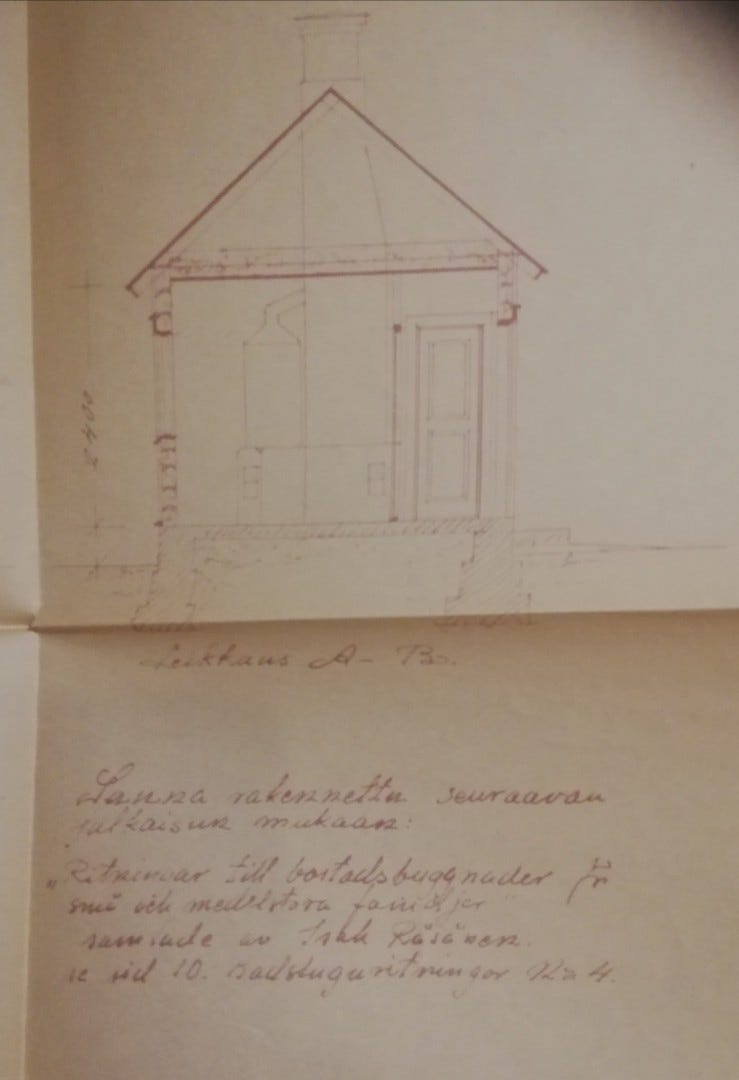 2400
Leikkaus A-B.
Sauna rakennettu seuraavan
julkaisun mukaan:
"Ritningar till bostadsbyggnader för
små och medelstora familjer"
samlade av Isak Räsänen.
se sid 10. Badstuguritningar No 4.